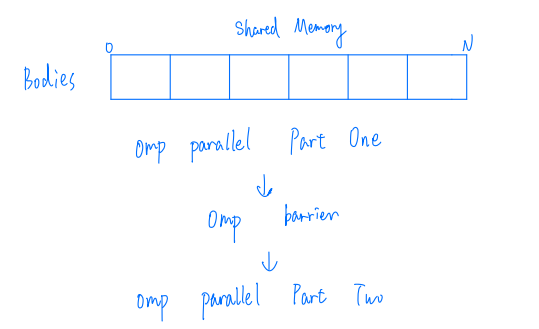 Shared Memory
0 N
Bodies
Omp parallel Part One
Omp barrier
Omp parallel Part Two